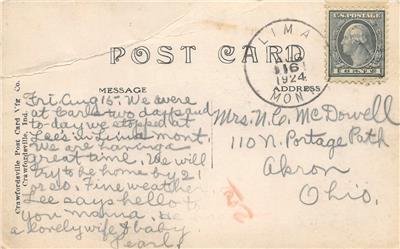 POST CARD
LIMA
16
1924
MONT.
U.S. POSTAGE
1 CENT 1
MESSAGE
ADDRESS
Crawfordsville Post Card Vig Co.
Crawfordsville, Ind.
Fri Aug 15. We were
at Carls two days and
to day we stopped at
Lee's in Lima Mont.
We are having a
great time. We will
try to be home by 21
or so. Fine weather
Lee says hello to
you mama. He
a lovely wife & baby
Pearl
Mrs. N.C. McDowell
110 N. Portage Path
Akron
Ohio.